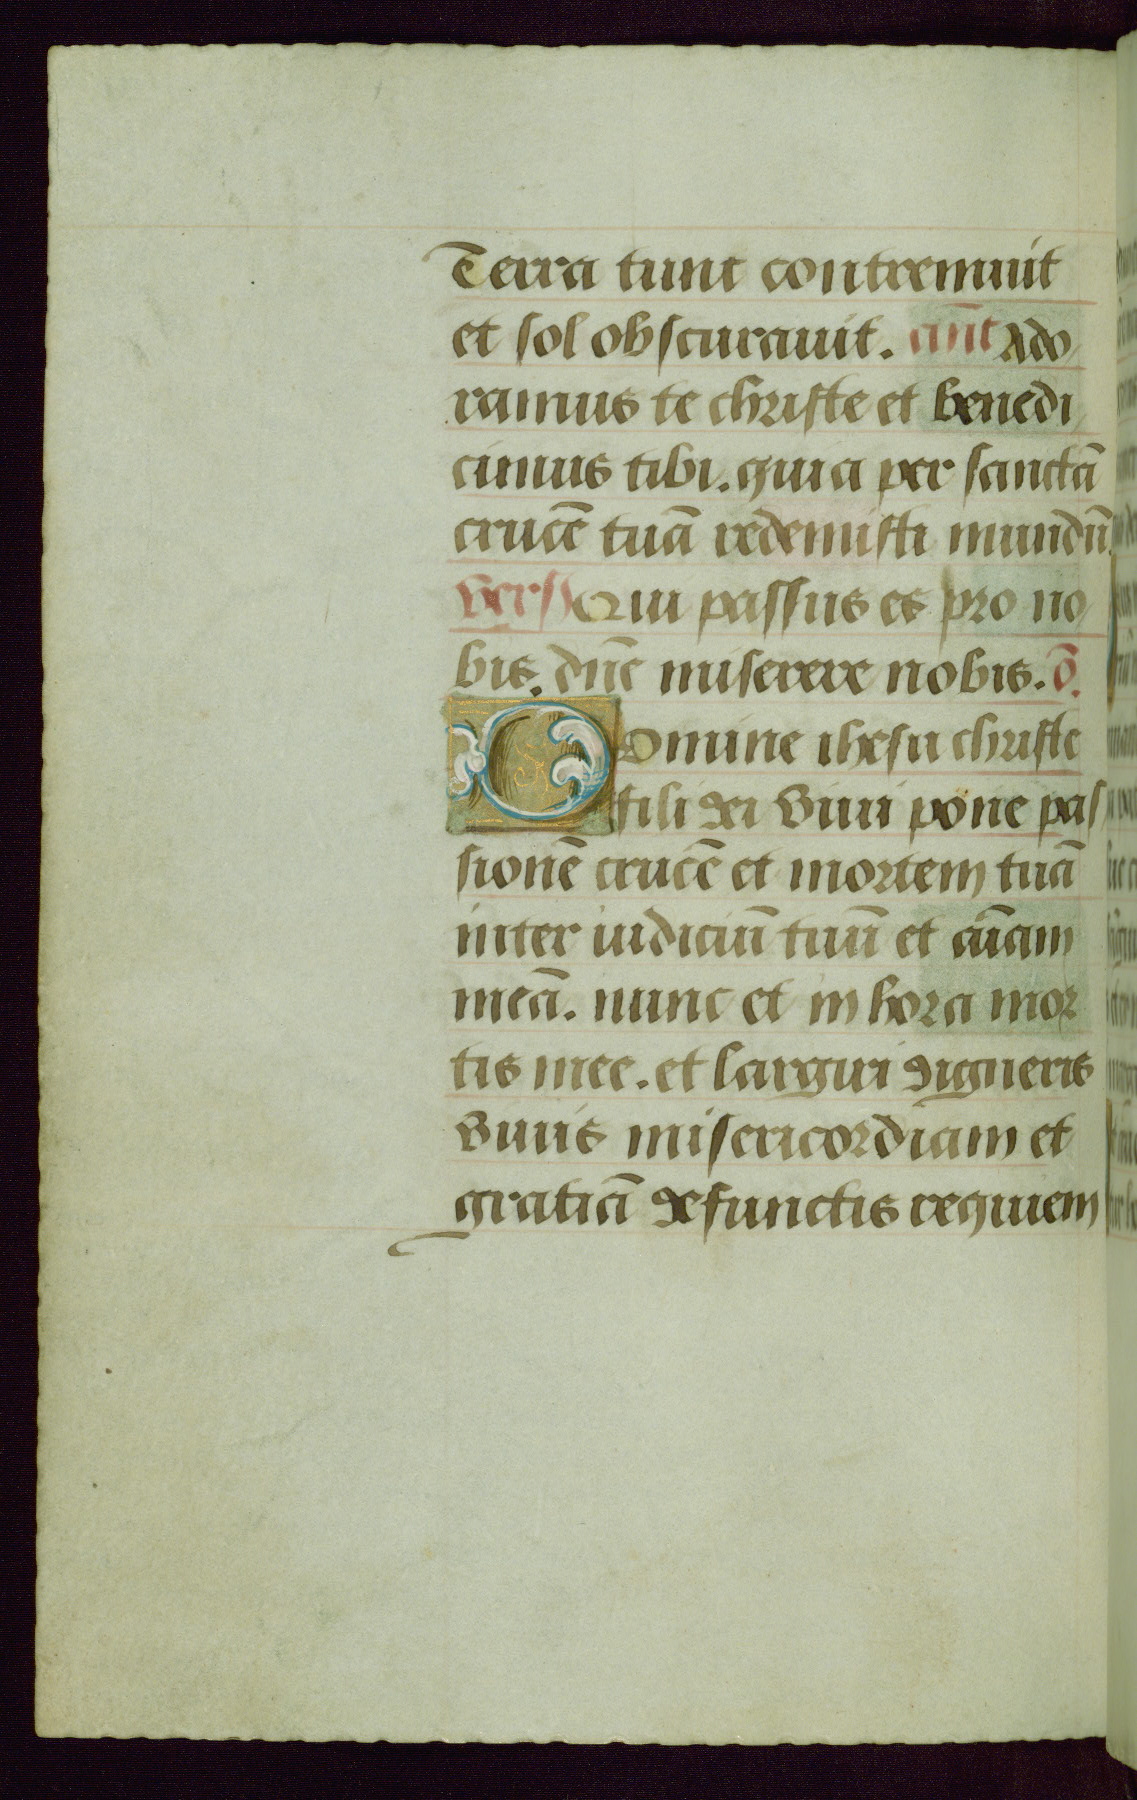 Terra tunc contremuit
et sol obscurauit. añt Ado
ramus te christe et benedi
cimus tibi. quia per sanctā
crucē tuā redemisti mundū.
vers Qui passus es pro no
bis. dñe miserere nobis. ō.
Domine ihesu christe
fili dei viui pone pas
sionē crucē et mortem tuā
inter iudiciū tuū et aīam
meā. nunc et in hora mor
tis mee. et largiri digneris
viuis misericordiam et
gratiā defunctis requiem